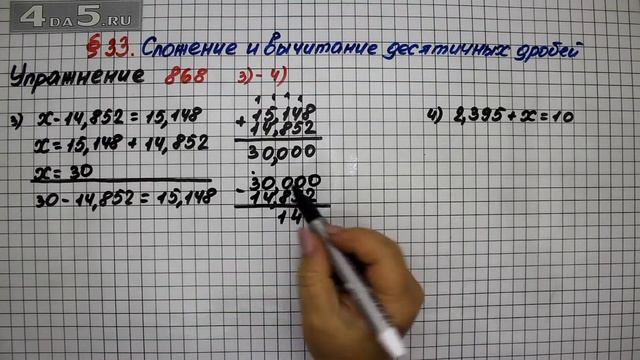 4DA5.RU
§ 33. Сложение и вычитание десятичных дробей
Упражнение 868 3)-4)
3) x-14,852=15,148
x=15,148+14,852
x=30
30-14,852=15,148
+ 15,148
14,852
30,000
- 30,000
14,852
14
4) 2,395+x=10